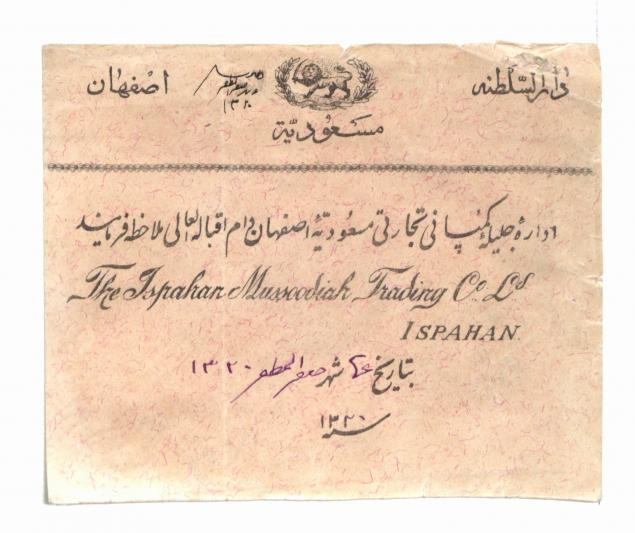 دارالسلطنه اصفهان
۱۳۲۰
مسعودیّة
اداره جلیله کمپانی تجارتی مسعودیّهٔ اصفهان دام اقباله العالی ملاحظه فرمایند
The Ispahan Mussoodiah Trading Co. Ld
ISPAHAN.
بتاریخ شهر صفر المظفر ۱۳۲۰
سنه ۱۳۲۰